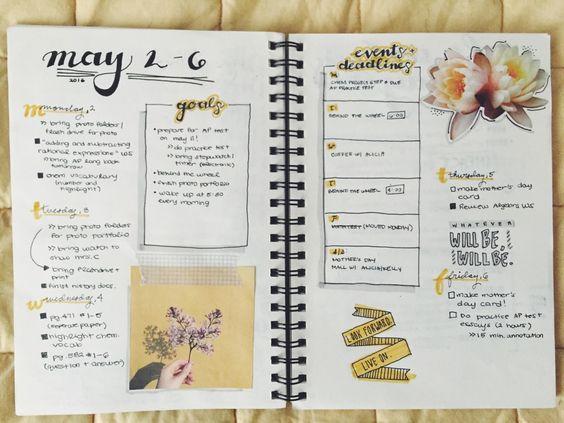 may 2-6
2016
monday, 2
» bring photo folder/
flash drive for photo
"adding and subtracting
rational expressions" WS
» bring AP Lang book
tomorrow
chem vocabulary
(number and
highlight)
tuesday, 3
» bring photo folder
for photo portfolio
» bring watch to
show mrs. c
» bring flashdrive +
print
finish history docs.
wednesday, 4
pg. 471 # 1-5
(separate paper)
highlight chem.
vocab
pg. 582 # 1-6
(question + answer)
goals
• prepare for AP test
on may 11!
» do practice test
» bring stopwatch/
timer (electronic)
• behind the wheel
• finish photo portfolio
• wake up at 5:30
every morning
events +
deadlines
M
CHEM PROJECT STEP 2 DUE
AP PRACTICE TEST
T
BEHIND THE WHEEL
W
COFFEE W/ ALICIA
T
BEHIND THE WHEEL
F
(MOVED MONDAY)
S/S
MOTHER'S DAY
MALL W/ ALICIA/KELLY
LOOK FORWARD.
LIVE ON...
thursday, 5
make mother's day
card
Review Algebra WS
WHATEVER
WILL BE,
WILL BE.
friday, 6
make mother's
day card!
Do practice AP test
essays (2 hours)
» 15 min. annotation